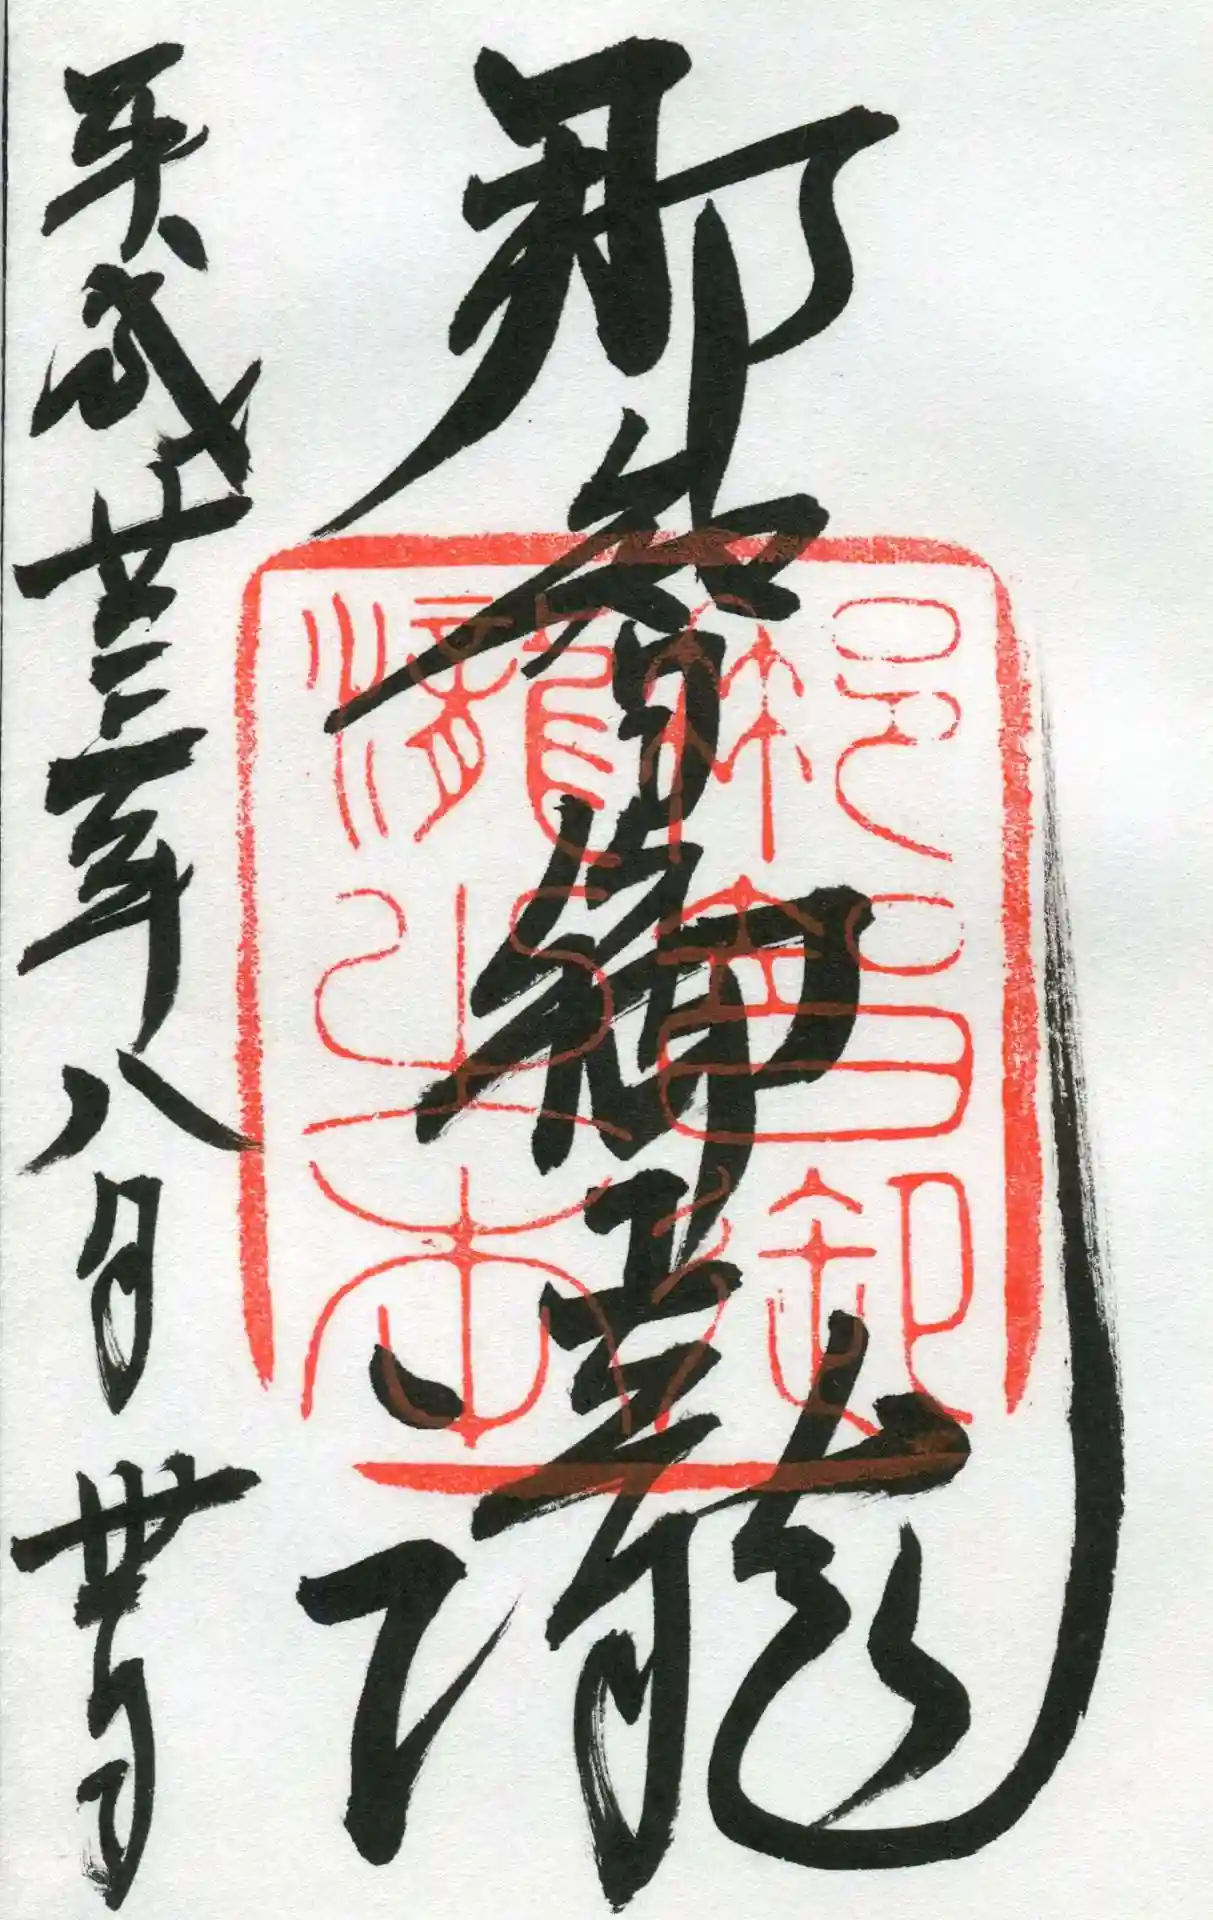 那智御瀧
平成廿三年八月卅日
那智御
瀧之本